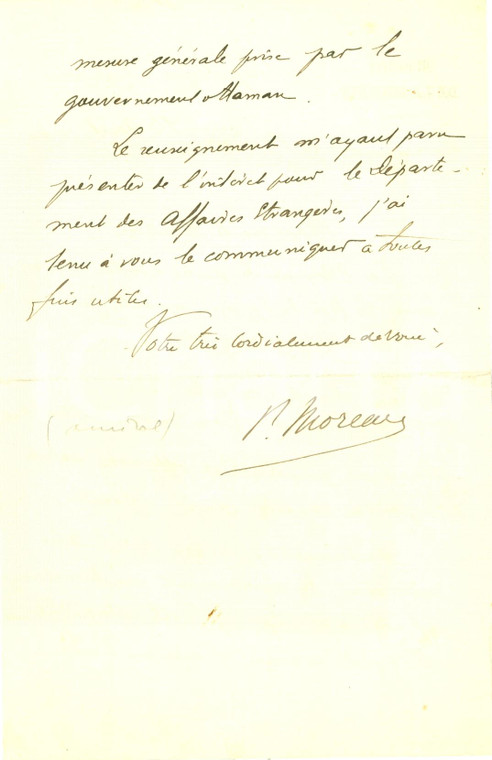 mesure générale prise par le
gouvernement ottoman.
Le renseignement m'ayant paru
présenter de l'intérêt pour le Départe-
ment des Affaires Etrangères, j'ai
tenu à vous le communiquer à toutes
fins utiles.
Votre très cordialement dévoué,
Moreau